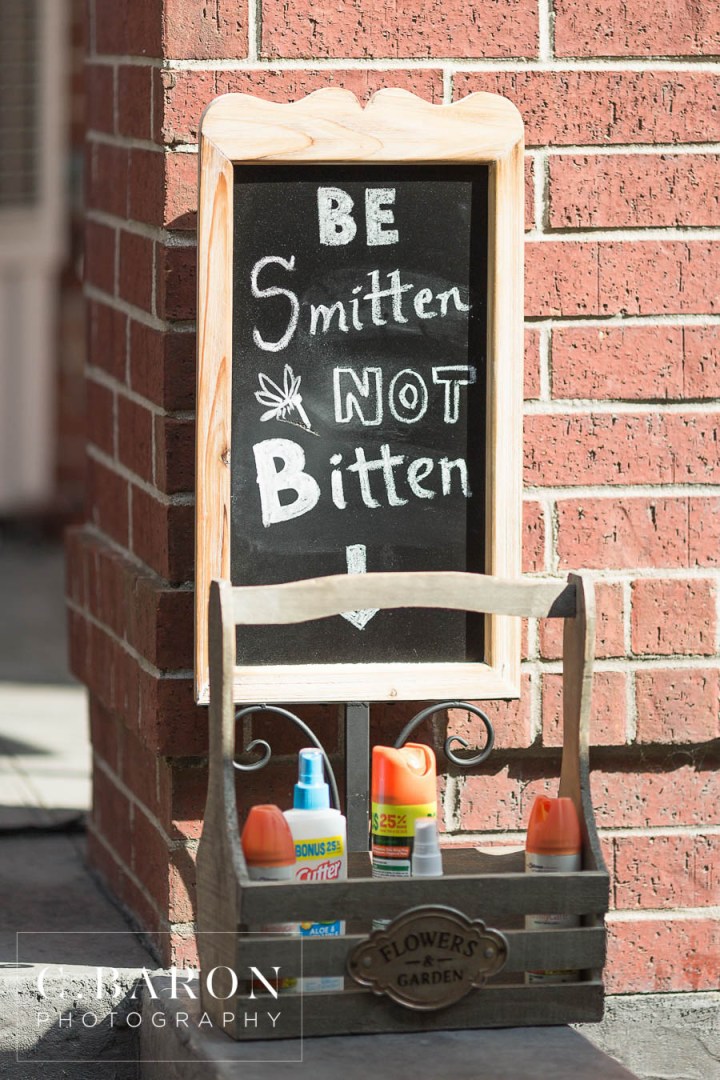 BE
Smitten
NOT
Bitten
BONUS 25%
Cutter
ALOE
25%
FLOWERS
&
GARDEN
C. BARON
PHOTOGRAPHY